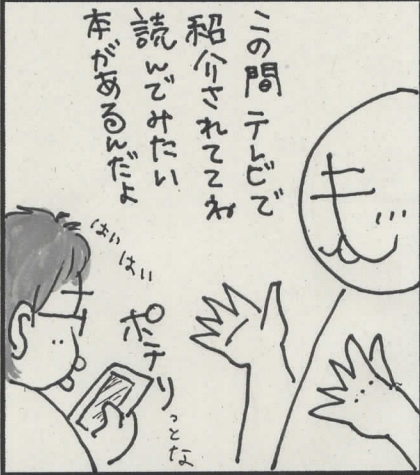 この間 テレビで
紹介されててね
読んでみたい
本があるんだよ
も
はいはい
ポチリっとな